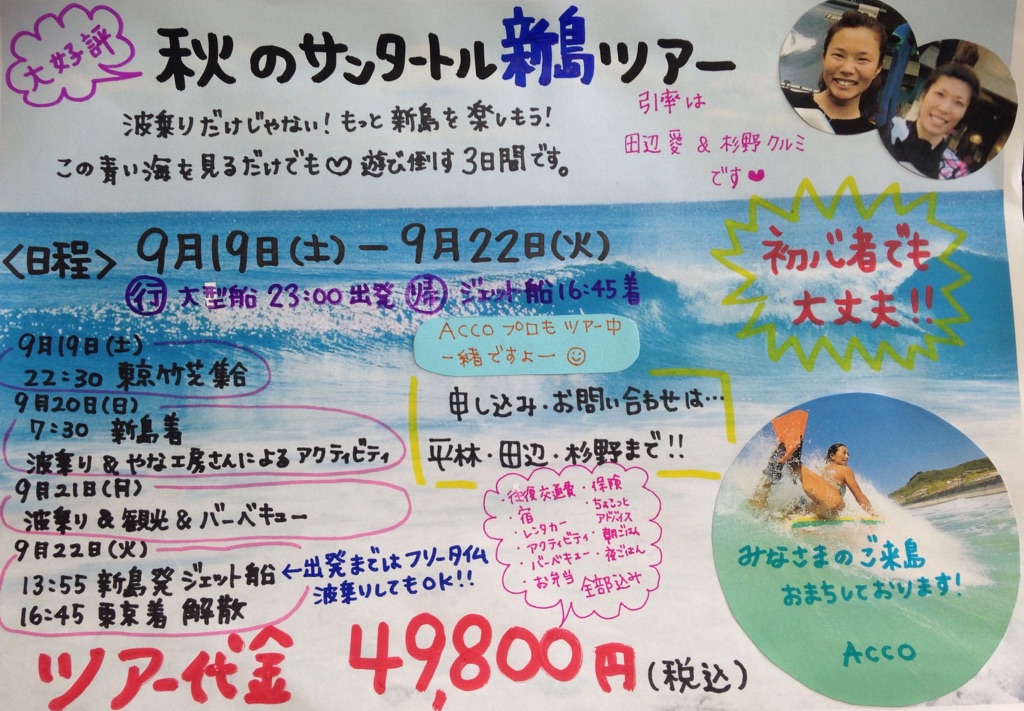 大好評
秋のサンタートル新島ツアー
波乗りだけじゃない!もっと新島を楽しもう!
この青い海を見るだけでも♡遊び倒す3日間です。
引率は
田辺愛&杉野クルミ
です♥
<日程> 9月19日(土)ー9月22日(火)
行 大型船 23:00出発 帰 ジェット船16:45着
初心者でも
大丈夫!!
Accoプロもツアー中
一緒ですよー☺
9月19日(土)
22:30 東京竹芝集合
9月20日(日)
7:30 新島着
波乗り&やな工房さんによるアクティビティ
9月21日(月)
波乗り&観光&バーベキュー
9月22日(火)
13:55 新島発 ジェット船
16:45 東京着 解散
←出発まではフリータイム
波乗りしてもOK!!
申し込み・お問い合わせは…
平林・田辺・杉野まで!!
・往復交通費・保険
・宿 ・ちょこっと
アドバイス
・レンタカー
・アクティビティ・朝ごはん
・バーベキュー・夜ごはん
・お弁当 全部込み
ツアー代金 49,800円(税込)
みなさまのご来島
おまちしております!
Acco